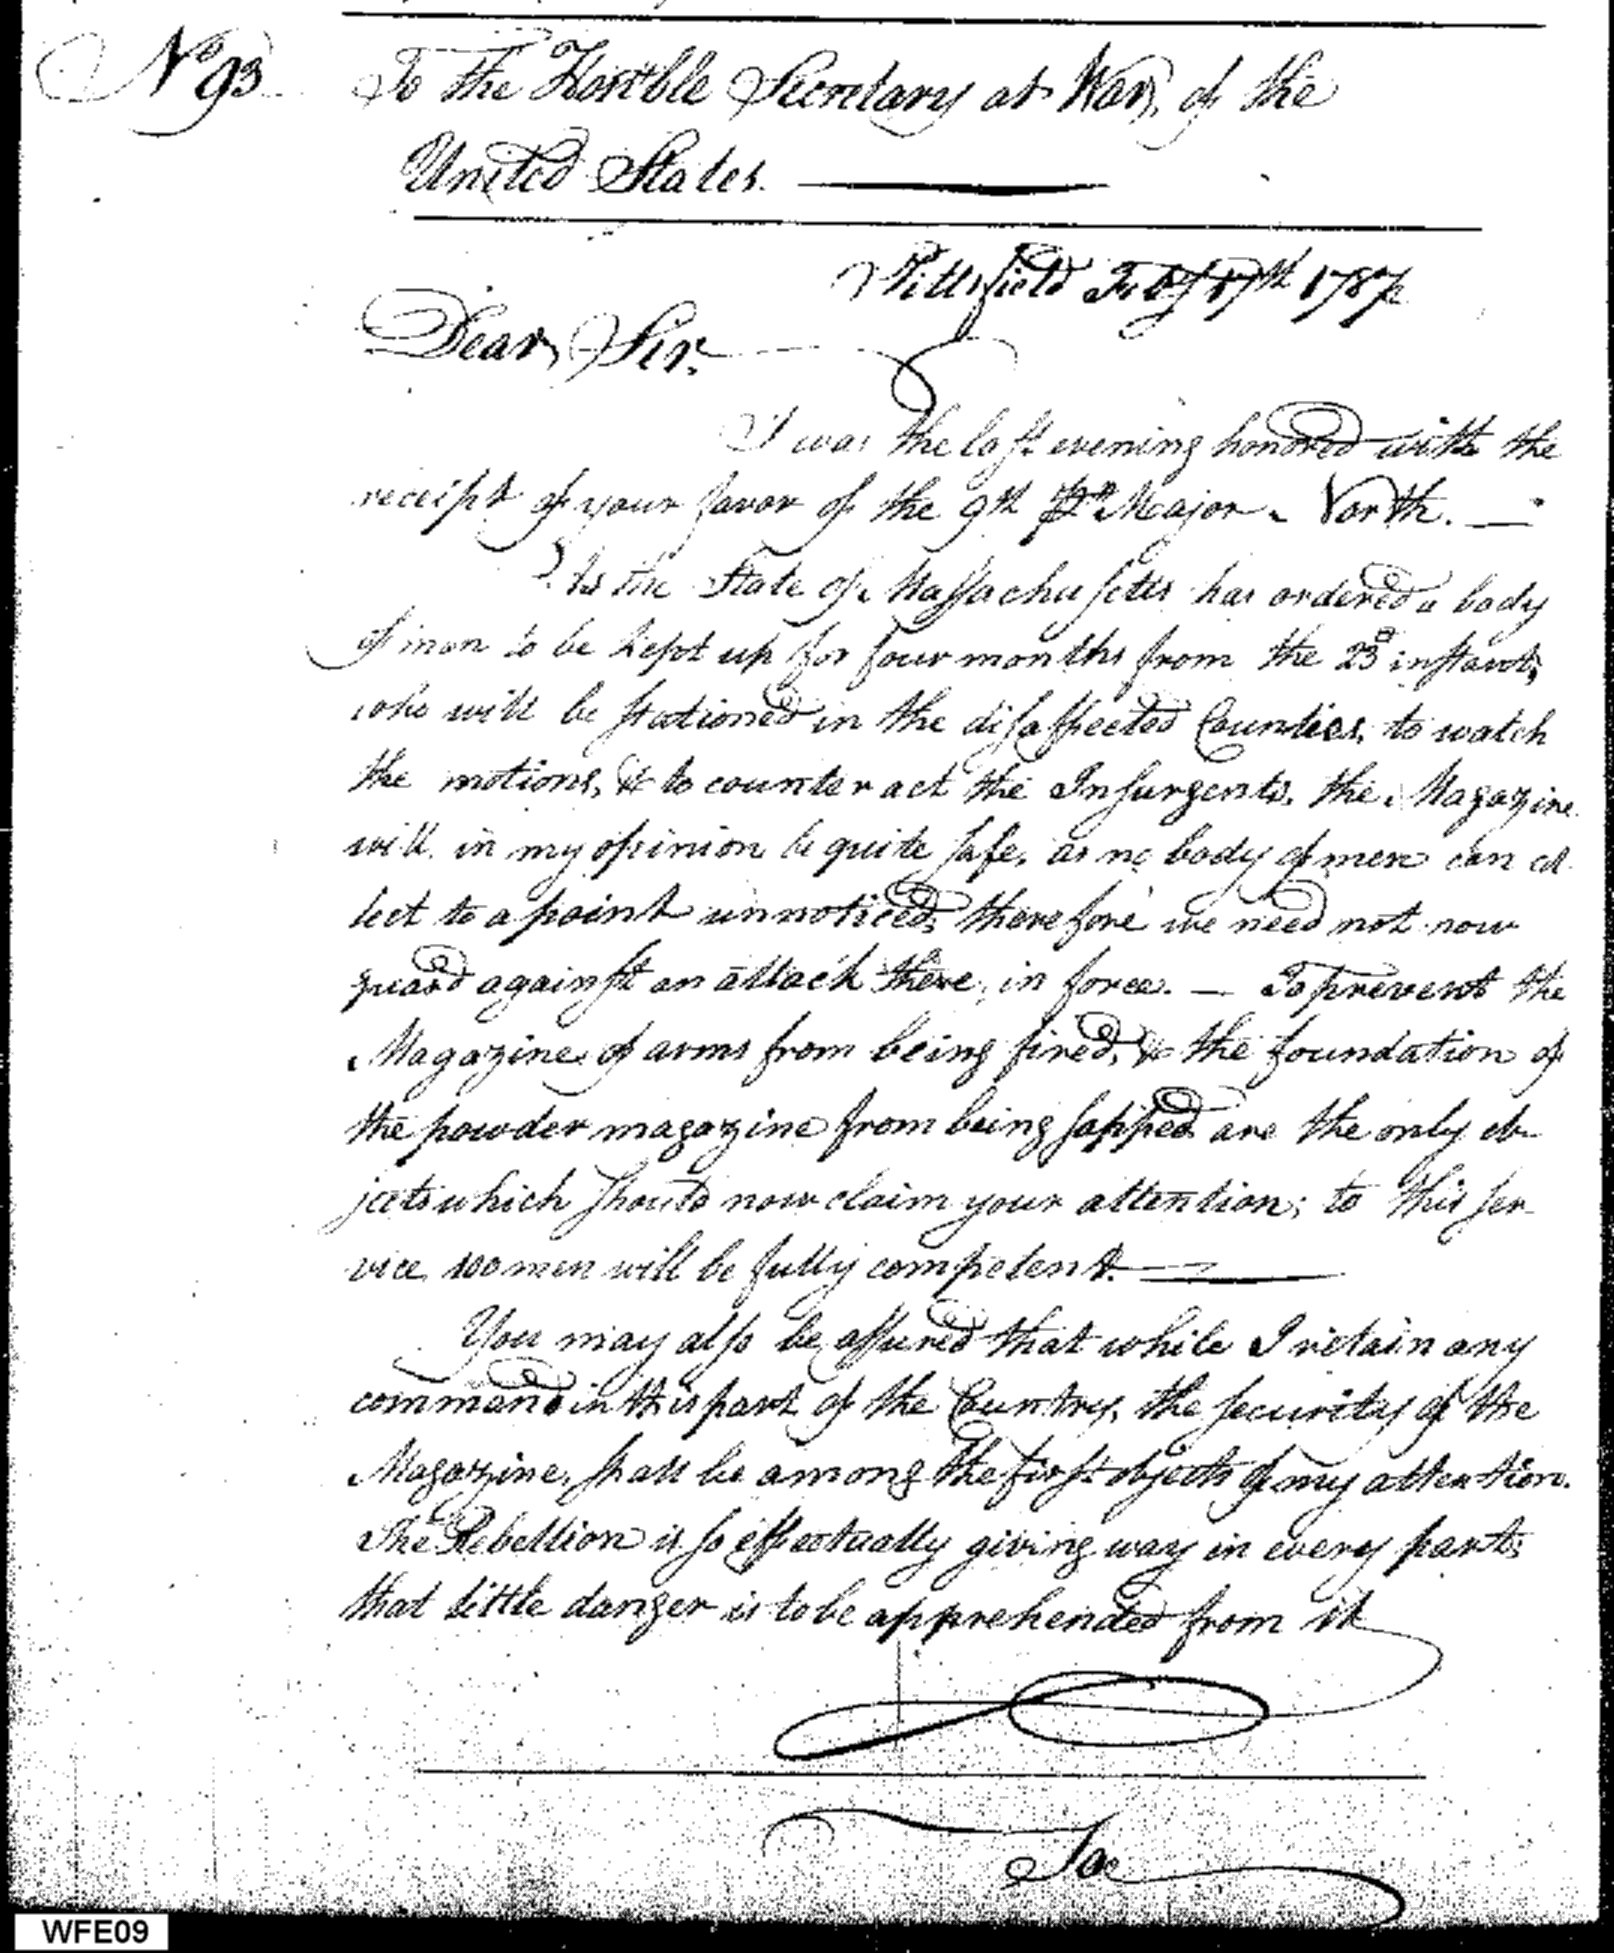 No 93
To the Honble Secretary at War, of the
United States.
Pittsfield Feby 17th 1787
Dear Sir.
I was the last evening honored with the
receipt of your favor of the 9th Pr Major North. —
As the State of Massachusetts has ordered a body
of men to be kept up for four months from the 23d instant,
who will be stationed in the disaffected Counties, to watch
the motions, & to counter act the Insurgents, the Magazine
will in my opinion be quite safe, as no body of men can col
lect to a point unnoticed, therefore we need not now
guard against an attack there, in force. — To prevent the
Magazine of arms from being fired, & the foundation of
the powder magazine from being sapped are the only ob-
jects which should now claim your attention; to this ser-
vice 100 men will be fully competent.
You may also be assured that while I retain any
command in this part of the Country, the security of the
Magazine, shall be among the first objects of my attention.
The Rebellion is so effectually giving way in every part,
that little danger is to be apprehended from it
To
WFE09